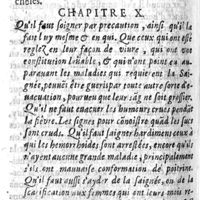 cheles.
CHAPITRE X.
Qu'il faut soigner par precaution, ainsi qu'il la
fait luy mesme & en qui. Que ceux qui ont esté
reglez en leur façon de viure, qui ont vne
constitution loüable, & qui n'ont point eu au-
parauant les maladies qui requierent la Sai-
gnée, peuuēt estre gueris par toute autre sorte de-
euacuation, pourueu que leur âge ne soit en cause.
Qu'il ne faut euacuer les humeurs crues pendāt
la fiévre. Les signes pour cōnoistre quād les sucs
sont cruds. Qu'il faut saigner hardiment ceux à
qui les hemorrhoides sont arrestées, encor qu'ils
n'ayent aucune grande maladie, principalement
s'ils ont mauuaise conformation de poitrine.
Qu'il faut aussi s'ayder de la saignée, ou de la
scarification aux femmes qui ont leurs mois re-